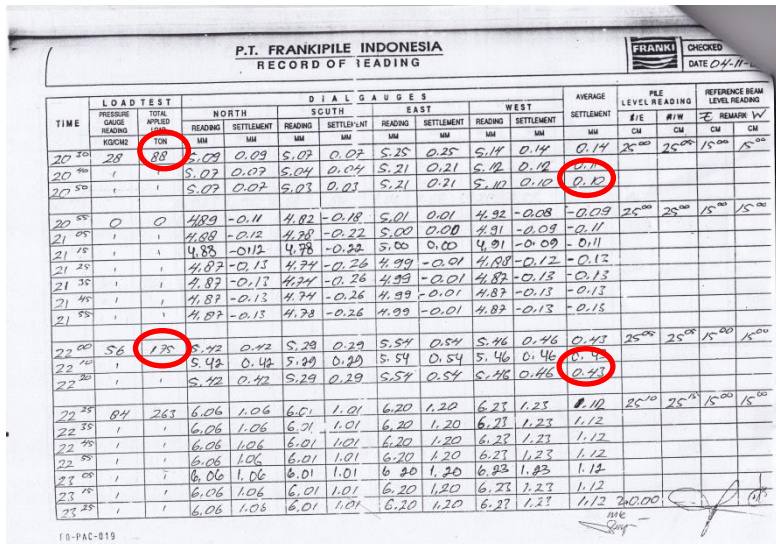 P.T. FRANKIPILE INDONESIA
RECORD OF READING
FRANKI
CHECKED
DATE 04-11-
TIME
LOAD TEST
PRESSURE GAUGE READING KG/CM2
TOTAL APPLIED LOAD TON
DIAL GAUGES
NORTH SOUTH EAST WEST
READING SETTLEMENT READING SETTLEMENT READING SETTLEMENT READING SETTLEMENT
MM MM MM MM MM MM MM MM
AVERAGE SETTLEMENT MM
PILE LEVEL READING
REFERENCE BEAM LEVEL READING
REMARK
CM CM CM CM
20 30 28 88 5.09 0.09 5.07 0.07 5.25 0.25 5.14 0.14 0.14 25 00 25 05 15 00 15 00
20 40 ' ' 5.07 0.07 5.04 0.04 5.21 0.21 5.12 0.12 0.11
20 50 ' ' 5.07 0.07 5.03 0.03 5.21 0.21 5.10 0.10 0.10
20 55 0 0 4.89 -0.11 4.82 -0.18 5.01 0.01 4.92 -0.08 -0.09 25 00 25 00 15 00 15 00
21 05 ' ' 4.88 -0.12 4.78 -0.22 5.00 0.00 4.91 -0.09 -0.11
21 15 ' ' 4.88 -0.12 4.78 -0.22 5.00 0.00 4.91 -0.09 -0.11
21 25 ' ' 4.87 -0.13 4.74 -0.26 4.99 -0.01 4.88 -0.12 -0.13
21 35 ' ' 4.87 -0.13 4.74 -0.26 4.99 -0.01 4.87 -0.13 -0.13
21 45 ' ' 4.87 -0.13 4.74 -0.26 4.99 -0.01 4.87 -0.13 -0.13
21 55 ' ' 4.87 -0.13 4.78 -0.26 4.99 -0.01 4.87 -0.13 -0.13
22 00 56 175 5.42 0.42 5.29 0.29 5.54 0.54 5.46 0.46 0.43 25 05 25 05 15 00 15 00
22 10 ' 5.42 0.42 5.29 0.29 5.54 0.54 5.46 0.46 0.43
22 20 ' 5.42 0.42 5.29 0.29 5.54 0.54 5.46 0.46 0.43
22 25 84 263 6.06 1.06 6.01 1.01 6.20 1.20 6.23 1.23 1.12 25 10 25 15 15 00 15 00
22 35 ' ' 6.06 1.06 6.01 1.01 6.20 1.20 6.23 1.23 1.12
22 45 ' ' 6.06 1.06 6.01 1.01 6.20 1.20 6.23 1.23 1.12
22 55 ' ' 6.06 1.06 6.01 1.01 6.20 1.20 6.23 1.23 1.12
23 05 ' ' 6.06 1.06 6.01 1.01 6.20 1.20 6.23 1.23 1.12
23 15 ' ' 6.06 1.06 6.01 1.01 6.20 1.20 6.23 1.23 1.12
23 25 ' ' 6.06 1.06 6.01 1.01 6.20 1.20 6.23 1.23 1.12
FO-PAC-019